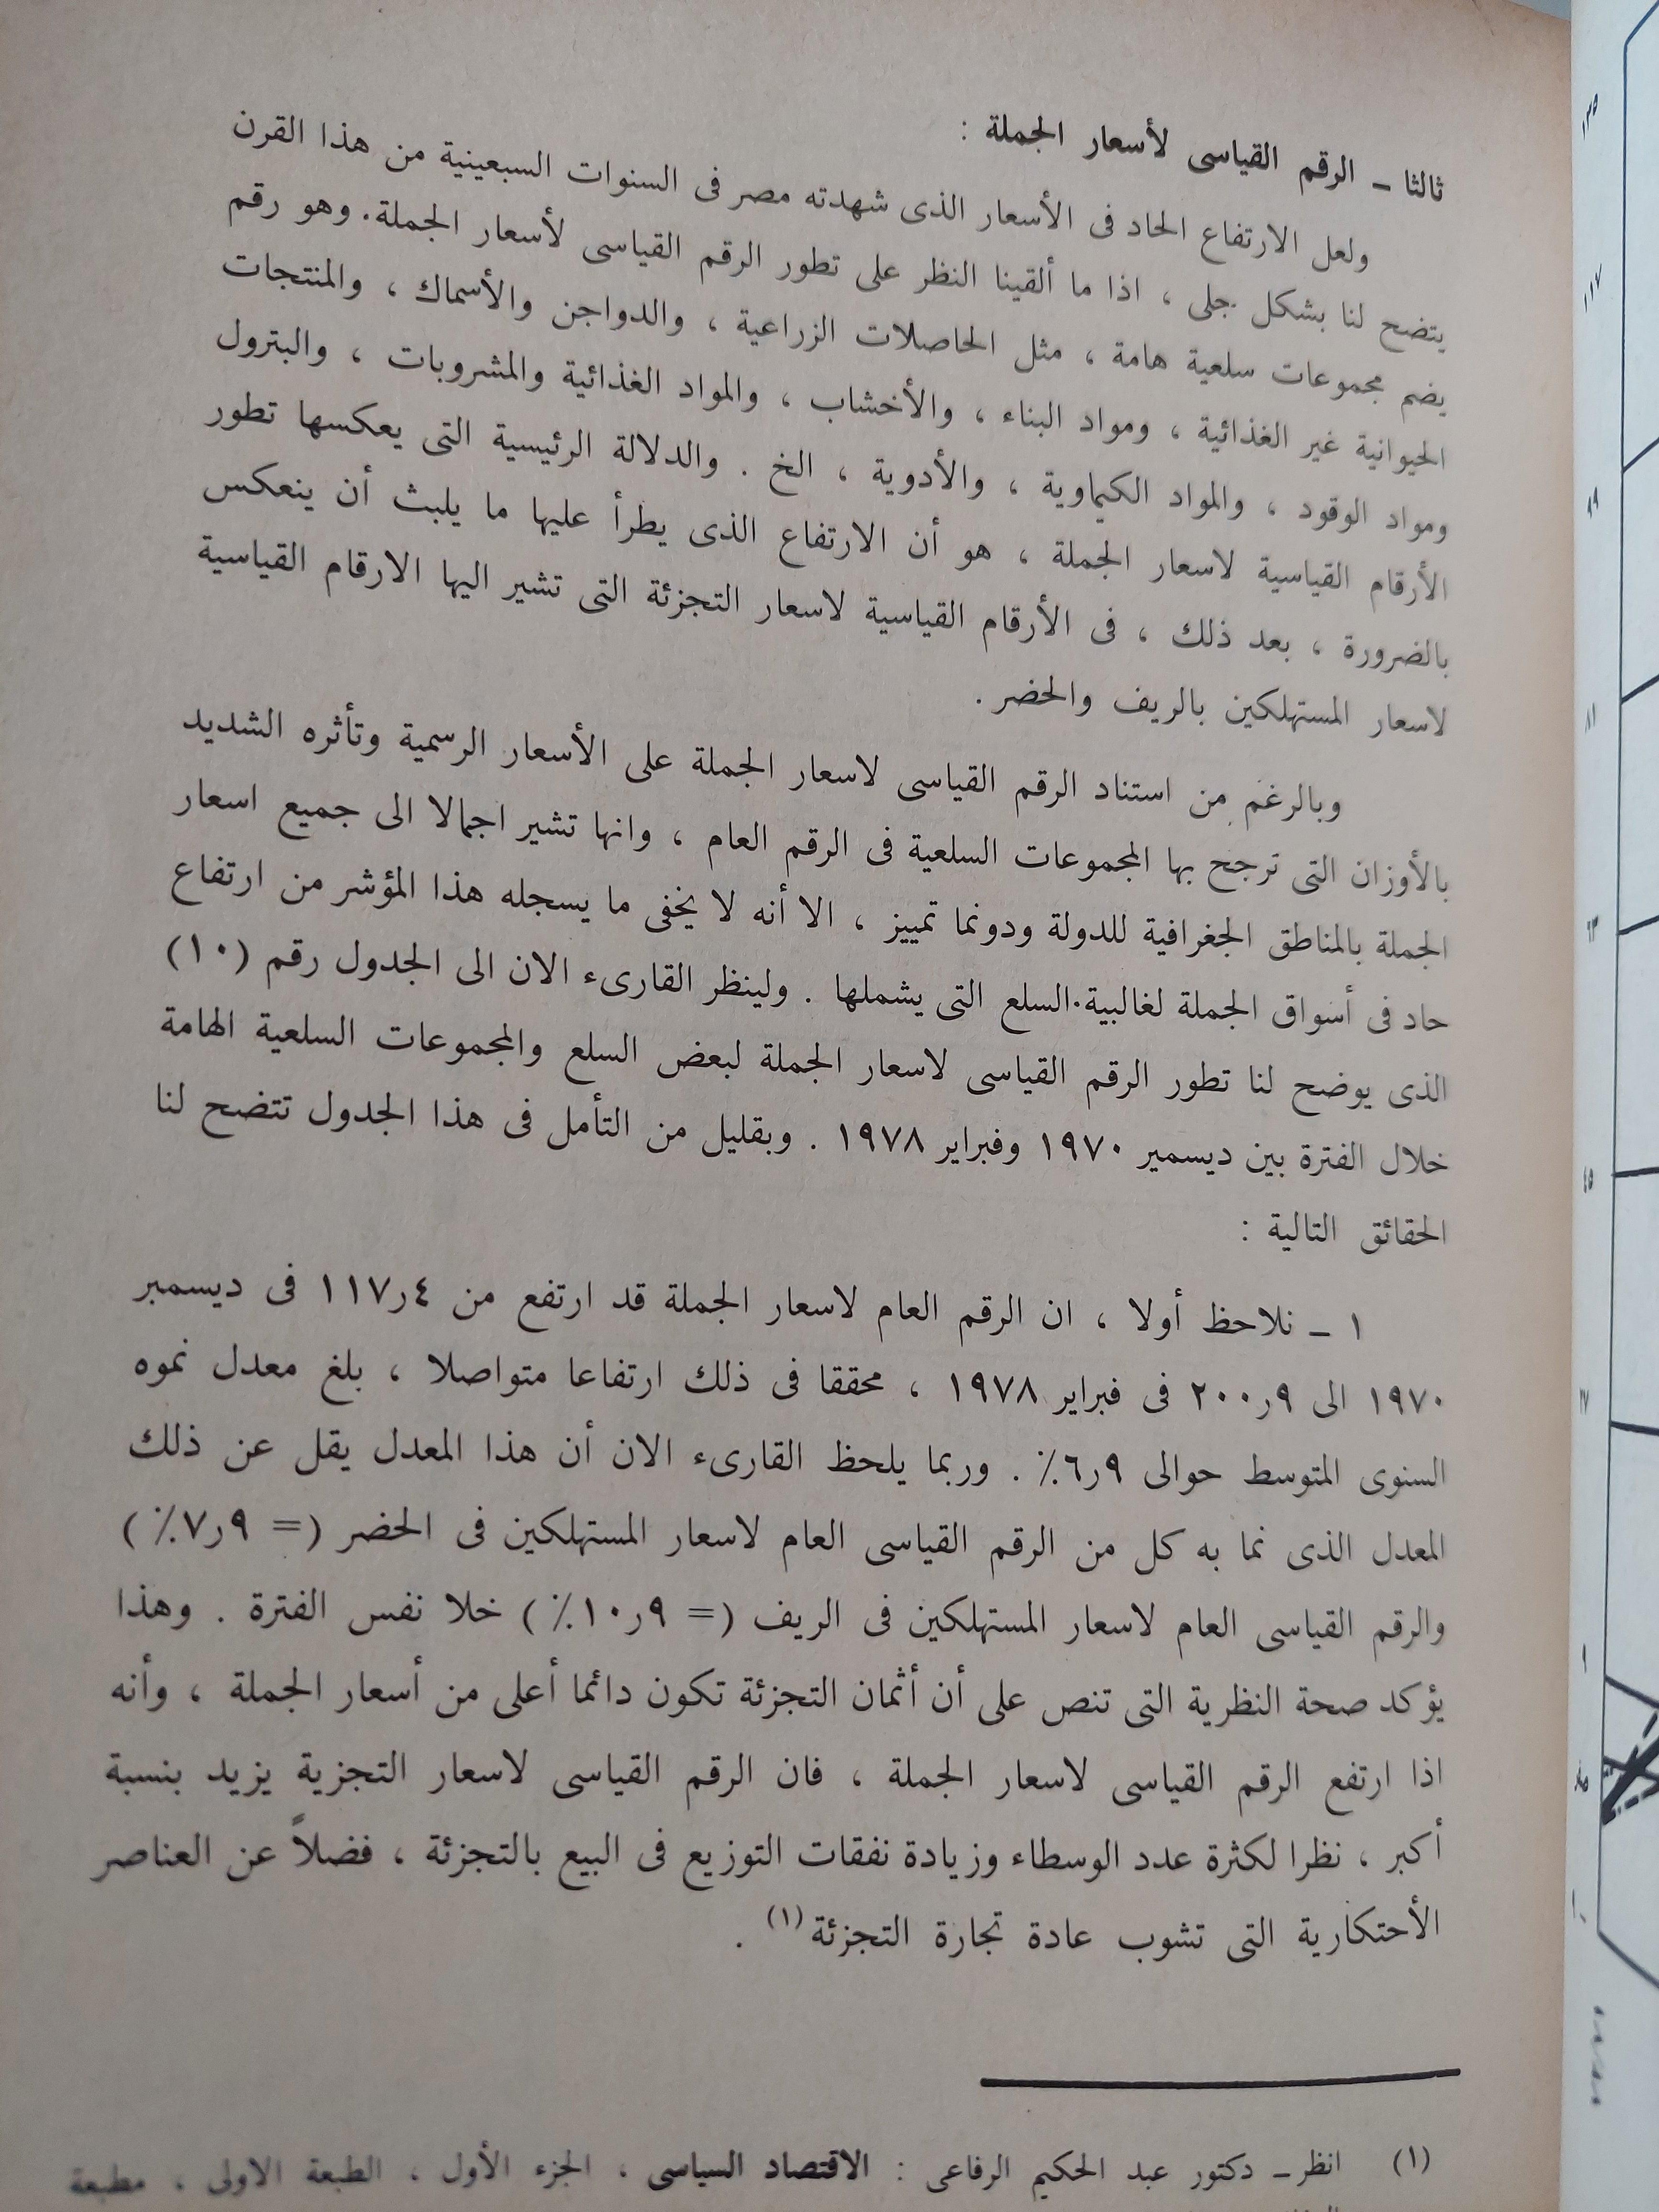 ثالثا ــ الرقم القياسى لأسعار الجملة :
ولعل الارتفاع الحاد فى الأسعار الذى شهدته مصر فى السنوات السبعينية من هذا القرن
يتضح لنا بشكل جلى ، اذا ما ألقينا النظر على تطور الرقم القياسى لأسعار الجملة. وهو رقم
يضم مجموعات سلعية هامة ، مثل الحاصلات الزراعية ، والدواجن والأسماك ، والمنتجات
الحيوانية غير الغذائية ، ومواد البناء ، والأخشاب ، والمواد الغذائية والمشروبات ، والبترول
ومواد الوقود ، والمواد الكيماوية ، والأدوية ، الخ . والدلالة الرئيسية التى يعكسها تطور
الأرقام القياسية لاسعار الجملة ، هو أن الارتفاع الذى يطرأ عليها ما يلبث أن ينعكس
بالضرورة ، بعد ذلك ، فى الأرقام القياسية لاسعار التجزئة التى تشير اليها الارقام القياسية
لاسعار المستهلكين بالريف والحضر .
وبالرغم من استناد الرقم القياسى لاسعار الجملة على الأسعار الرسمية وتأثره الشديد
بالأوزان التى ترجح بها المجموعات السلعية فى الرقم العام ، وانها تشير اجمالا الى جميع اسعار
الجملة بالمناطق الجغرافية للدولة ودونما تمييز ، الا أنه لا يخفى ما يسجله هذا المؤشر من ارتفاع
حاد فى أسواق الجملة لغالبية السلع التى يشملها . ولينظر القارىء الان الى الجدول رقم (١٠)
الذى يوضح لنا تطور الرقم القياسى لاسعار الجملة لبعض السلع والمجموعات السلعية الهامة
خلال الفترة بين ديسمير ١٩٧٠ وفبراير ١٩٧٨ . وبقليل من التأمل فى هذا الجدول تتضح لنا
الحقائق التالية :
١ ــ نلاحظ أولا ، ان الرقم العام لاسعار الجملة قد ارتفع من ١١٧٫٤ فى ديسمبر
١٩٧٠ الى ٢٠٠٫٩ فى فبراير ١٩٧٨ ، محققا فى ذلك ارتفاعا متواصلا ، بلغ معدل نموه
السنوى المتوسط حوالى ٦٫٩٪ . وربما يلحظ القارىء الان أن هذا المعدل يقل عن ذلك
المعدل الذى نما به كل من الرقم القياسى العام لاسعار المستهلكين فى الحضر (= ٧٫٩٪ )
والرقم القياسى العام لاسعار المستهلكين فى الريف (= ١٠٫٩٪ ) خلا نفس الفترة . وهذا
يؤكد صحة النظرية التى تنص على أن أثمان التجزئة تكون دائما أعلى من أسعار الجملة ، وأنه
اذا ارتفع الرقم القياسى لاسعار الجملة ، فان الرقم القياسى لاسعار التجزية يزيد بنسبة
أكبر ، نظرا لكثرة عدد الوسطاء وزيادة نفقات التوزيع فى البيع بالتجزئة ، فضلاً عن العناصر
الأحتكارية التى تشوب عادة تجارة التجزئة (١) .
(١) انظر ــ دكتور عبد الحكيم الرفاعى : الاقتصاد السياسى ، الجزء الأول ، الطبعة الاولى ، مطبعة
١٣٥
١١٧
٩٩
٨١
٦٣
٤٥
٢٧
٩